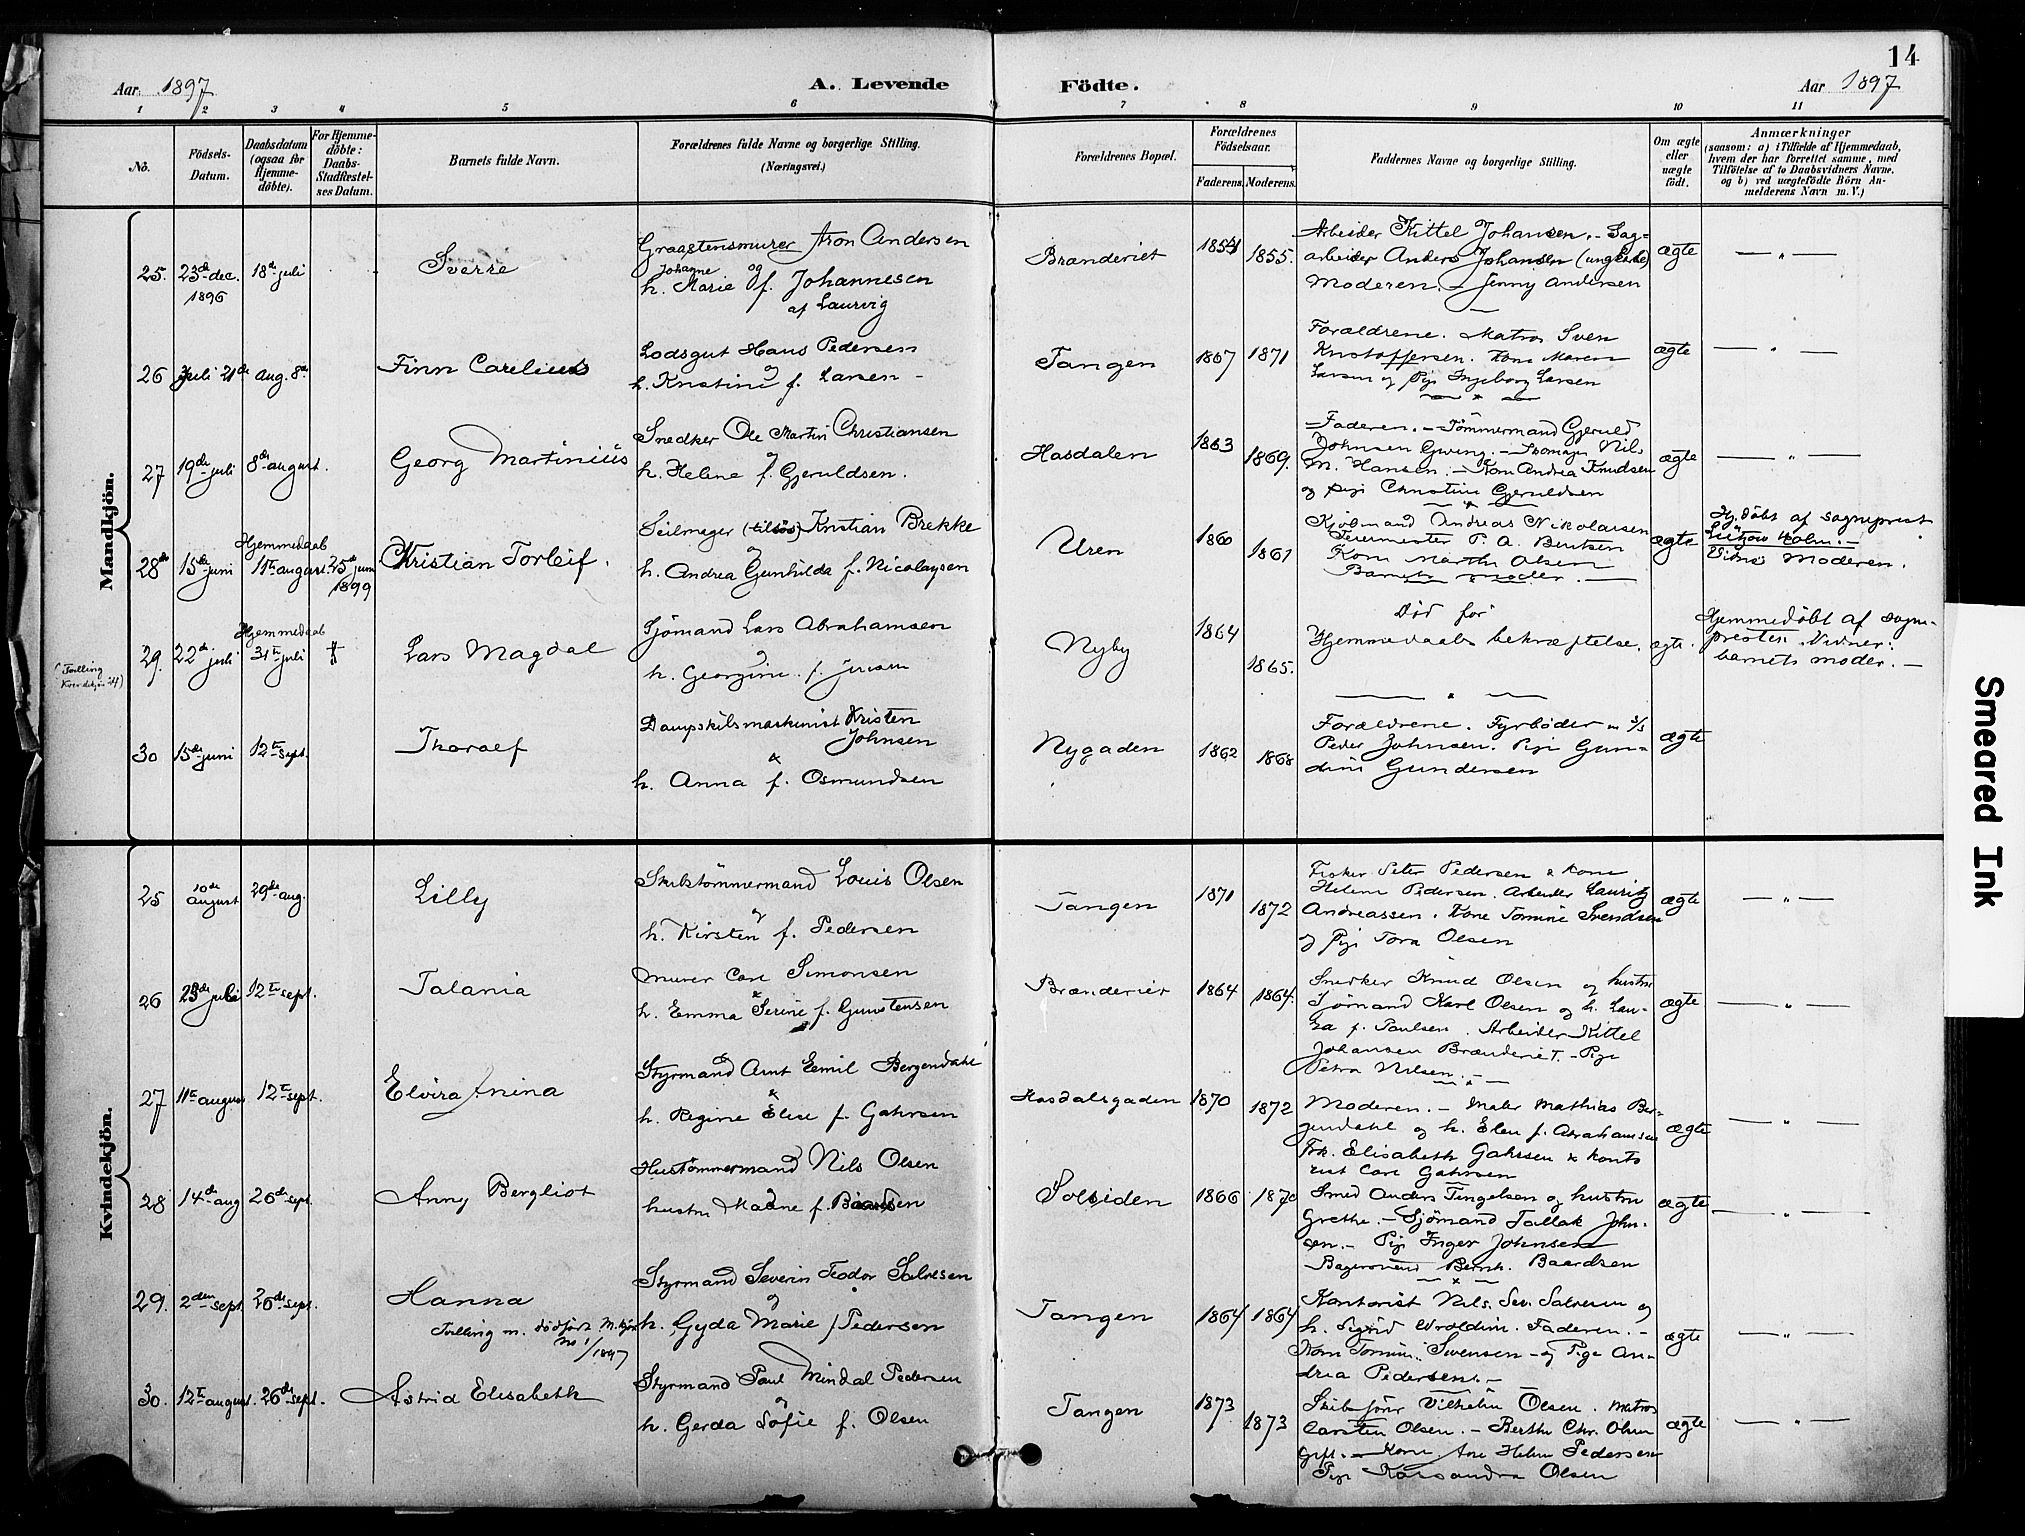 14
Aar 1897
A. Levende
Födte.
Aar 1897
1 2 3 4 5 6 7 8 9 10 11
No.
Födsels-Datum.
Daabsdatum (ogsaa for Hjemme-döbte).
For Hjemme-döbte: Daabs-Stadfæstel-ses Datum.
Barnets fulde Navn.
Forældrenes fulde Navne og borgerlige Stilling.
(Næringsvei.)
Forældrenes Bopæl.
Forældrenes Födselsaar.
Faderens. Moderens.
Faddernes Navne og borgerlige Stilling.
Om ægte eller uægte födt.
Anmærkninger
(saasom: a) i Tilfælde af Hjemmedaab,
hvem der har forrettet samme, med
Tilföielse af to Daabsvidners Navne.
og b) ved uægtefödte Börn An-
melderens Navn m. V.)
Mandkjön.
25. 23de dec. 1896
18de juli
Sverre
Graastensmurer Aron Andersen
Johanne og
h. Marie f. Johannesen
af Laurvig
Brænderiet
1854 1855.
Arbeider Kittel Johansen. - Sag-
arbeider Anders Johansen (ungkarl)
Moderen. - Jenny Andersen
ægte
— „ —
26 Juli 21de
aug. 8de
Finn Carelius
Lodsgut Hans Pedersen
og
h. Kristine f. Larsen -
Tangen
1867 1871
Forældrene. Matros Sven
Kristoffersen. Kone Maren
Larsen og Pige Ingeborg Larsen
ægte
— „ —
27 19de juli
8de august.
Georg Martinius
Snedker Ole Martin Christiansen
og
h. Helene f. Gjeruldsen.
Hasdalen
1863 1869.
Faderen. - Tömmermand Gjeruld
Johnsen Gwing. - Nils
M. Hansen. - Kone Andrea Knudsen
og pige Christine Gjeruldsen
ægte
— „ —
28de 15de juni
Hjemmedaab
11te august.
25de juni 1899
Kristian Torleif.
Seilmager (tilsös) Kristian Brekke
og
h. Andrea Gunhilda f. Nicolaysen
Uren
1860 1861
Kjöbmand Andreas Nikolaisen
P. A. Bentsen
Kone Marthe Olsen
Barnets moder. —
ægte
Hj.döbt af sogneprest
Lützow Holm. -
Vidne Moderen.
(Tvilling Kvindekjön 24)
29. 22de juli
Hjemmedaab
31te juli
†
Lars Magdal
Sjömand Lars Abrahamsen
og
h. Georgine f. Jensen
Nyby
1864 1865.
Död för
Hjemmedaabs bekræftelse.
ægte.
Hjemmedöbt af sogne-
presten. Vidner:
barnets moder. -
30 15de juni
12te sept.
Thoralf
Dampskibsmaskinist Kristen
Johnsen
&
h. Anna f. Osmundsen
Nygaden
1862 1868
Forældrene. Fyrböder m s/s
Peder Johnsen. Pige Gun-
dine Gundersen
ægte
Kvindekjön.
25 10de august
29de aug.
Lilly
Skibstömmermand Louis Olsen
og
h. Kirsten f. Pedersen
Tangen
1871 1872
Fisker Peter Pedersen & kone
Helene Pedersen. Arbeider Lauritz
Andreassen. Kone Tomine Svendsen
og Pige Tora Olsen
ægte
— „ —
26 23de juli
12te sept.
Talania
Murer Carl Simonsen
&
h. Emma Serine f. Gunstensen
Brænderiet
1864 1864.
Snedker Knud Olsen og hustru
Sjömand Karl Olsen og h. Lau-
ra f. Paulsen. Arbeider Kittel
Johansen Brænderiet. - Pige
Petra Nilsen. -
ægte
— „ —
27 11te august
12te sept.
Elvira Anina
Styrmand Arnt Emil Bergendahl
&
h. Regine Elise f. Gahrsen
Hasdalsgaden
1870 1872
Moderen. - Maler Mathias Ber-
gendahl og h. Elen f. Abrahamsen
Frk. Elisabeth Gahrsen & konto
rist Carl Gahrsen
ægte
— „ —
28 14de aug
26de sept.
Anny Bergliot
Hustömmermand Nils Olsen
hustru Madne f. Baardsen
Solsiden
1866 1870
Smed Anders Tingelsen og hustru
Grethe. - Sjömand Tallak John-
sen. - Pige Inger Johnsen
Bagersvend Bernh. Baardsen
ægte
— „ —
29. 2den sept.
26de sept.
Hanna
Tvilling m. dödfödt M.kjön
No 1/1897
Styrmand Severin Teodor Salvesen
og
h. Gyda Marie f Pedersen
Tangen
1864 1864
Kontorist Nils Sev. Salvesen og
h. Sigrid Wroldsen. Faderen. -
Kone Tomine Svensen - og Pige An-
drea Pedersen. -
ægte
— „ —
30. 12te august.
26de sept.
Astrid Elisabeth
Styrmand Paul Mindal Pedersen
og
h. Gerda Sofie f. Olsen
Tangen
1873 1873
Skibsförer Vilhelm Olsen. Matros
Carsten Olsen. - Berthe Chr. Olsen
gift. - Kone Ane Helene Pedersen
Pige Kassandra Olsen
ægte
— „ —
Smeared Ink